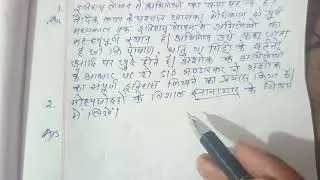 1. इतिहास लेखन में अभिलेखों का क्या महत्व है।
Ans वैदिक काल के पश्चात
मध्यकाल तक इतिहास लेखन में अभिलेखों का
महत्वपूर्ण स्थान है अभिलेख उसे कहा जाता
है जो कि पाषाण, धातु या मिट्टी के बर्तनों
आदि पर खुदे होते हैं। अशोक के अभिलेखों
के आधार पर ही डा० भण्डारकर ने अशोक
का संपूर्ण इतिहास लिखने का प्रयास किया है।
2. मोहनजोदड़ो के विशाल स्नानागार के विषय
में लिखें।
Ans